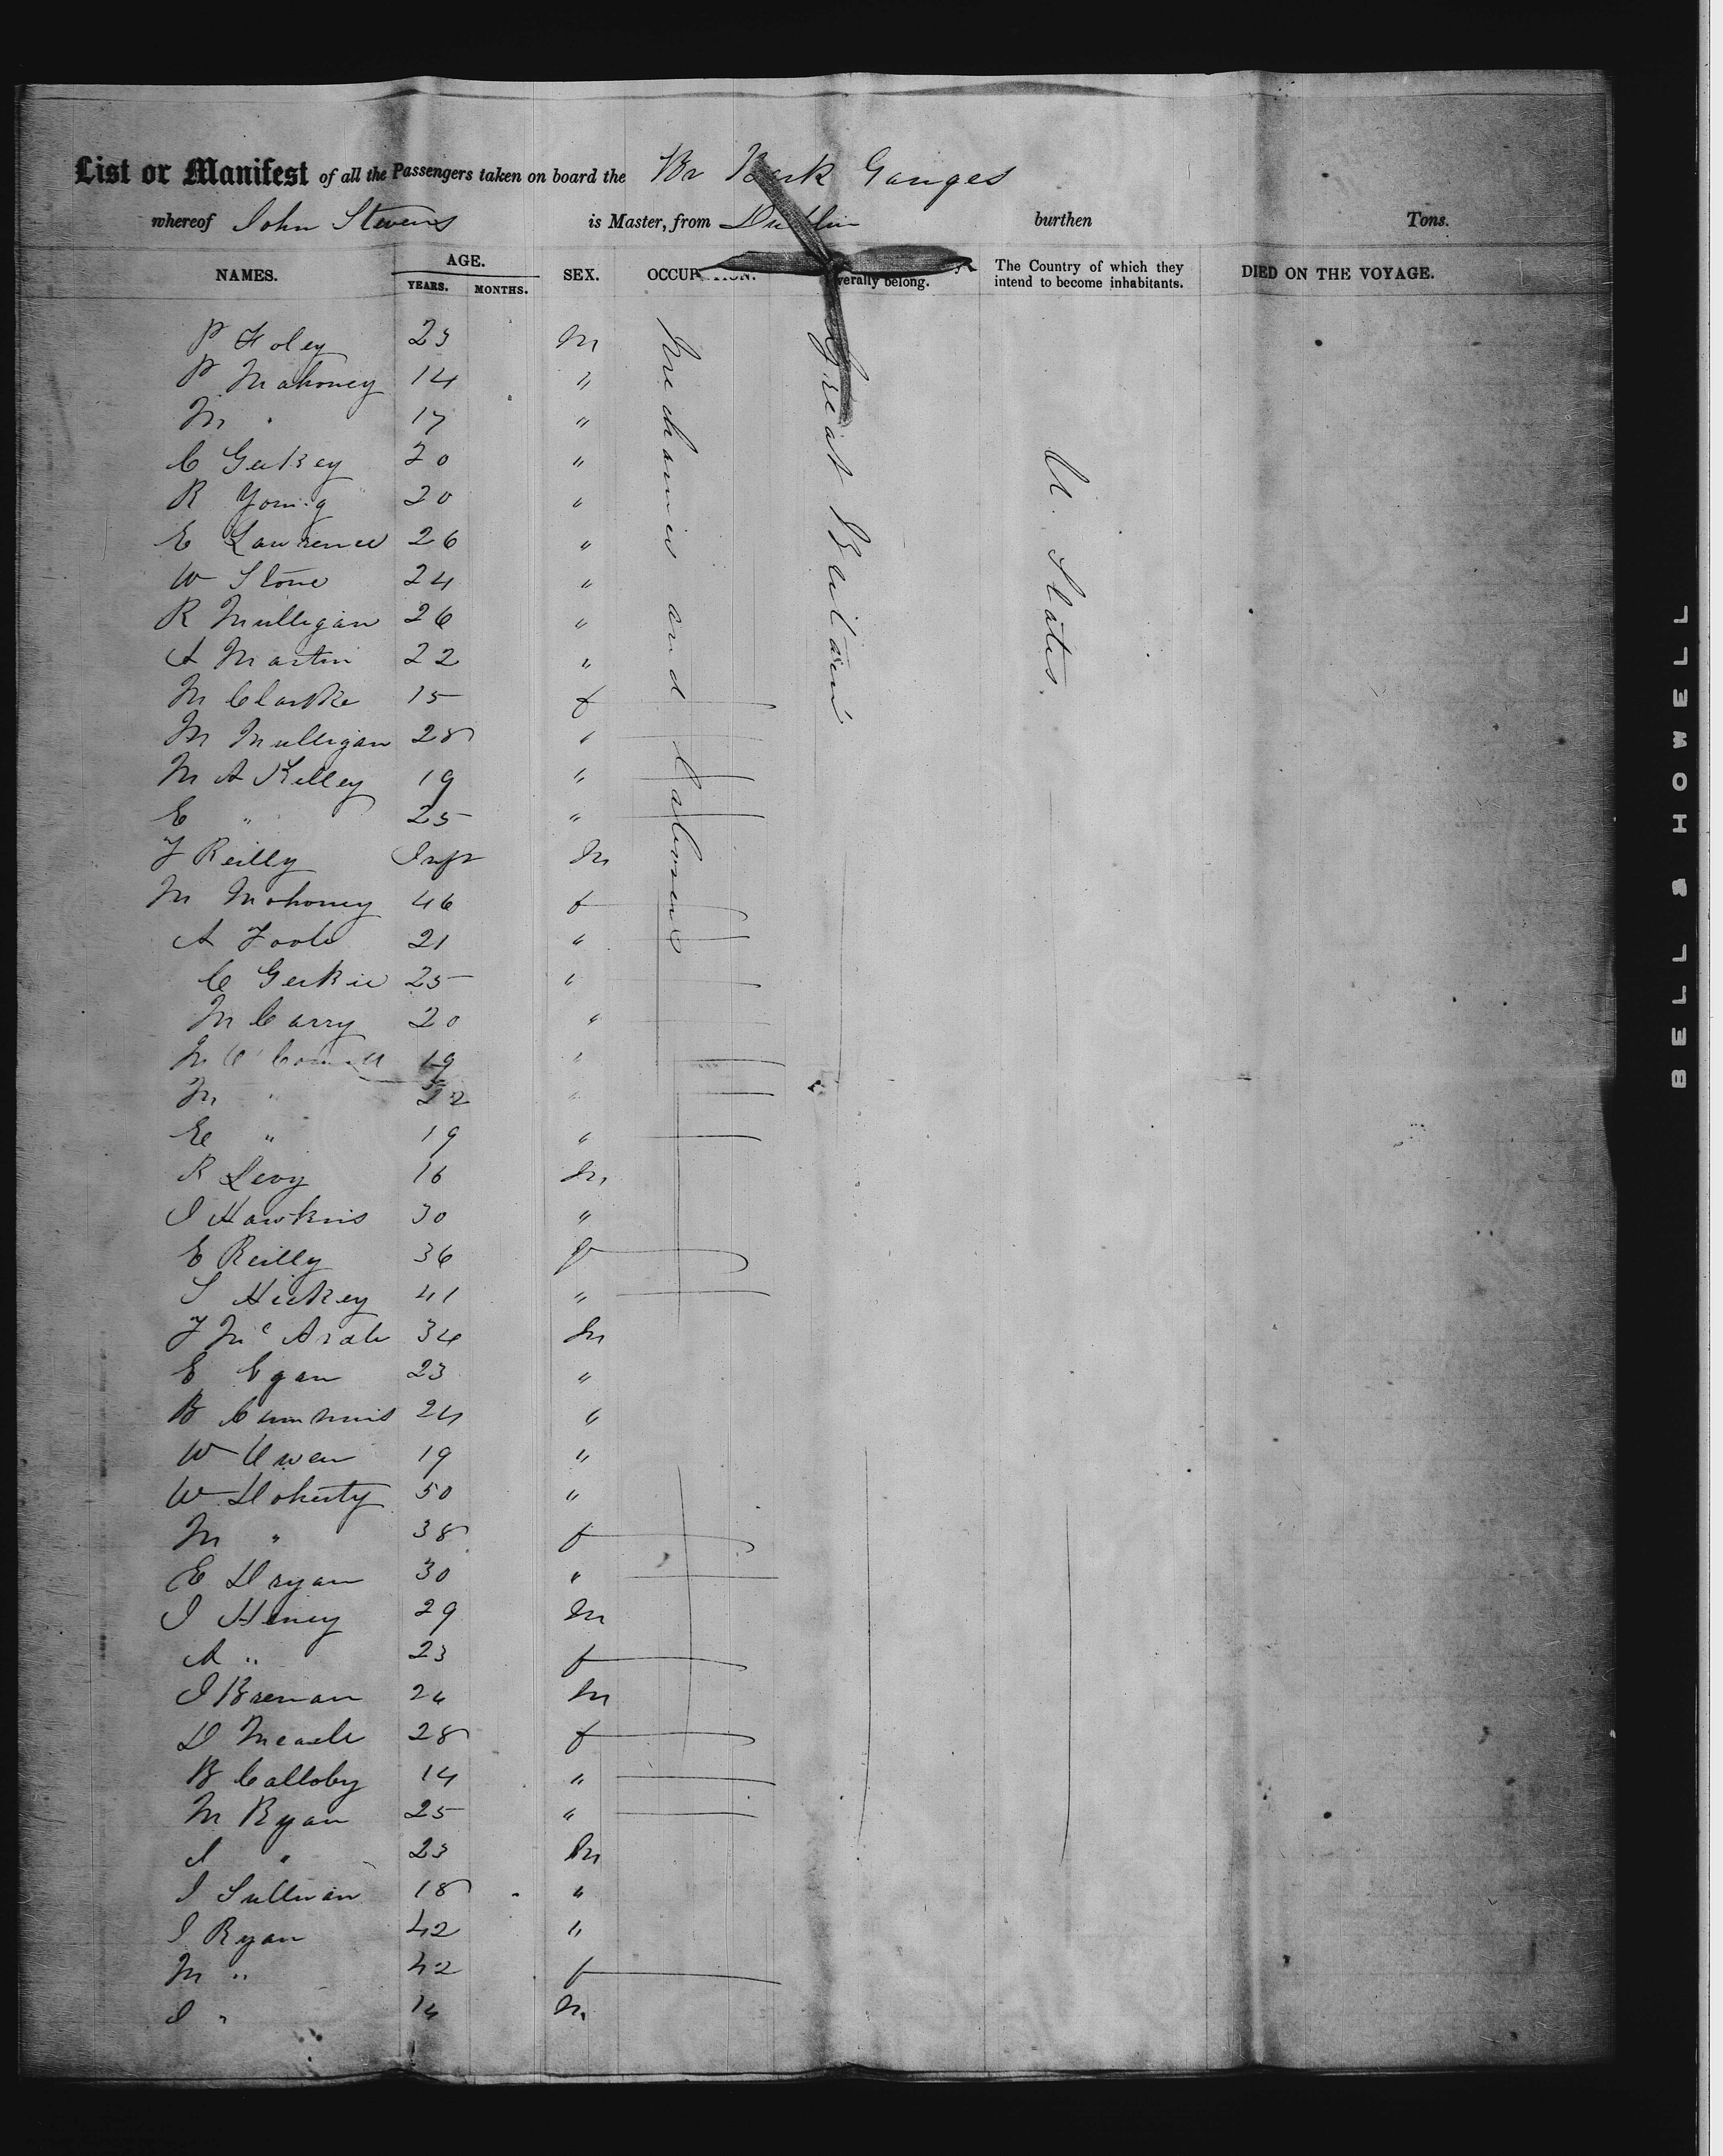 List or Manifest of all the Passengers taken on board the Br Bark Ganges
whereof John Stevens is Master, from Dublin burthen Tons.
NAMES. AGE. YEARS. MONTHS. SEX. OCCUPATION. verally belong. The Country of which they intend to become inhabitants. DIED ON THE VOYAGE.
Mechanics and Labourers
Great Britain
U. States.
P Foley 23 M
P Mahoney 14 "
M " 17 "
C Gerkey 20 "
R Young 20 "
E Lawrence 26 "
W Stone 24 "
R Mulligan 26 "
A Martin 22 "
M Clarke 15 f
M Mulligan 28 "
M A Kelley 19 "
E " 25 "
J Reilly Inft M
M Mahoney 46 f
A Toole 21 "
C Gerkie 25 "
M Carry 20 "
M 19 "
M " 22 "
E " 19 "
R Levy 16 M
J Hawkins 30 "
E Reilly 36 f
S Hickey 41 "
J Mc Ardle 34 M
E Egan 23 "
B Cummins 24 "
W Owen 19 "
W Doherty 50 "
M " 38 f
E Dryan 30 "
J Heney 29 M
A " 23 f
J Brenan 24 M
D Meade 28 f
B Calloby 14 "
M Ryan 25 "
J " 23 M
J Sullivan 18 "
J Ryan 42 "
M " 42 f
J " 14 M
BELL & HOWELL